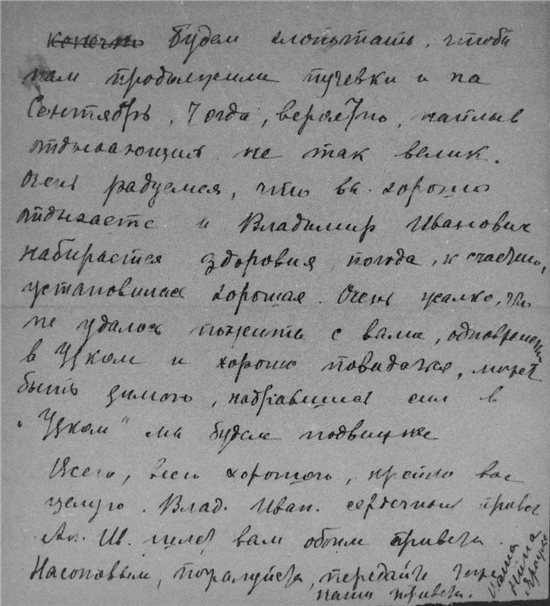 конечно будем хлопотать, чтоб
нам продолжили путевки и на
Сентябрь, Тогда, вероятно, наплыв
отдыхающих не так велик.
Очень радуемся, что вы хорошо
отдыхаете и Владимир Иванович
набирается здоровия, погода, к счастью,
установилась хорошая. Очень жалко, что
не удалось пожить с вами, одновременно
в Узком и хорошо повидаться, может
быть зимою, набравшись сил в
"Узком" мы будем подвижнее
Всего, всего хорошего, крепко вас
целую. Влад. Иван. сердечный привет
Ан. шлет вам обоим привет.
пожалуйста, передайте
наши привет.
Ваша
Нина